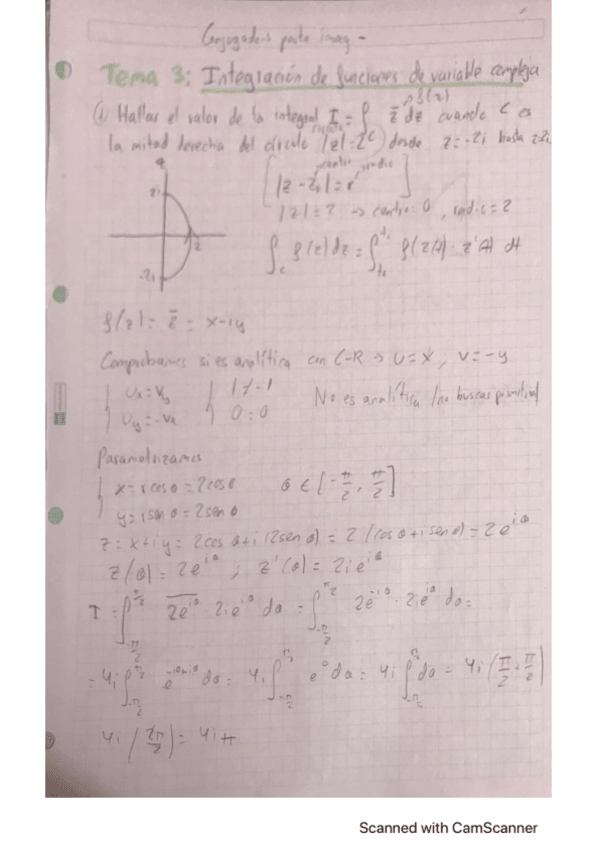 Conjugado → parte imag -
Tema 3: Integración de funciones de variable compleja
① Hallar el valor de la integral I = ∫_C z̄ dz cuando C es
f(z)
la mitad derecha del círculo |z|=2 desde z=-2i hasta z=2i.
centro radio
[|z-z₀|=r]
2i
|z|=2 → centro: 0, radio=2
2
∫_C f(z)dz = ∫_{t₀}^{t₁} f(z(t))·z'(t) dt
-2i
f(z)= z̄ = x-iy
Comprobamos si es analítica con C-R → U=x, V=-y
{ Ux=Vy { 1≠-1
No es analítica (no buscas primitiva)
Uy=-Vx 0=0
Parametrizamos
{ x=r cos θ = 2cos θ θ ∈ [-π/2, π/2]
y=r sin θ = 2sen θ
z=x+iy= 2cos θ+i(2sen θ) = 2(cos θ+i sen θ) = 2e^{iθ}
z(θ)=2e^{iθ} ; z'(θ)= 2ie^{iθ}
I = ∫_{-π/2}^{π/2} \overline{2e^{iθ}}·2ie^{iθ} dθ = ∫_{-π/2}^{π/2} 2e^{-iθ}·2ie^{iθ} dθ =
= 4i ∫_{-π/2}^{π/2} e^{-iθ+iθ} dθ = 4i ∫_{-π/2}^{π/2} e⁰ dθ = 4i ∫_{-π/2}^{π/2} dθ = 4i (π/2+π/2)
4i (2π/2) = 4iπ
Scanned with CamScanner